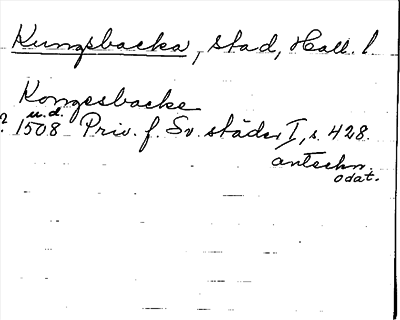 Kungsbacka, stad, Hall. l.
Kongesbacke
u.d.
? 1508 Priv. f. Sv. städer I, s. 428.
anteckn.
odat.